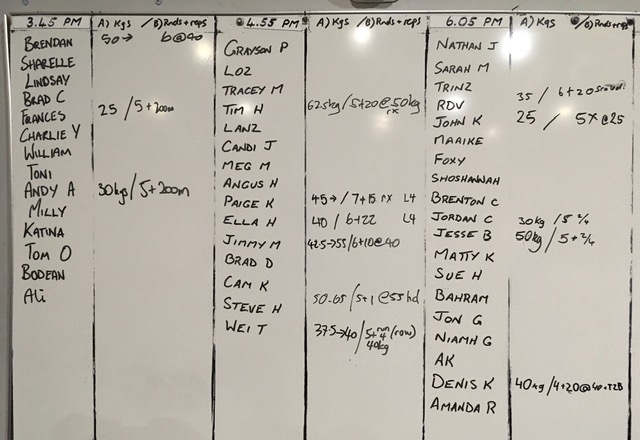 3.45 PM A) Kgs / B) Rnds + reps
BRENDAN 50 → 6 @ 40
SHARELLE
LINDSAY
BRAD C
FRANCES 25 / 5 + 200m
CHARLIE Y
WILLIAM
TONI
ANDY A 30kgs / 5 + 200m
MILLY
KATINA
TOM O
BODEAN
ALI
4.55 PM A) Kgs / B) Rnds + reps
GRAYSON P
LOZ
TRACEY M
TIM H 62.5kg / 5+20 @ 50kg rx
LANZ
CANDI J
MEG M
ANGUS H
PAIGE K 45 → / 7+15 rx L4
ELLA H 40 / 6+22 L4
JIMMY M 42.5→55 / 6+10 @ 40
BRAD D
CAM K
STEVE H 50.65 / 5+1 @ 55 hd
WEI T 37.5→40 / 5+4 run (row)
40kg
6.05 PM A) Kgs / B) Rnds + reps
NATHAN J
SARAH M
TRINZ
RDV 35 / 6+20
JOHN K 25 / 5x @ 25
MAAIKE
FOXY
SHOSHANNAH
BRENTON C
JORDAN C 30kg / 5 2/4
JESSE B 50kg / 5 + 2/4
MATTY K
SUE H
BAHRAM
JON G
NIAMH G
AK
DENIS K 40kg / 4+20 @ 40. T2B
AMANDA R